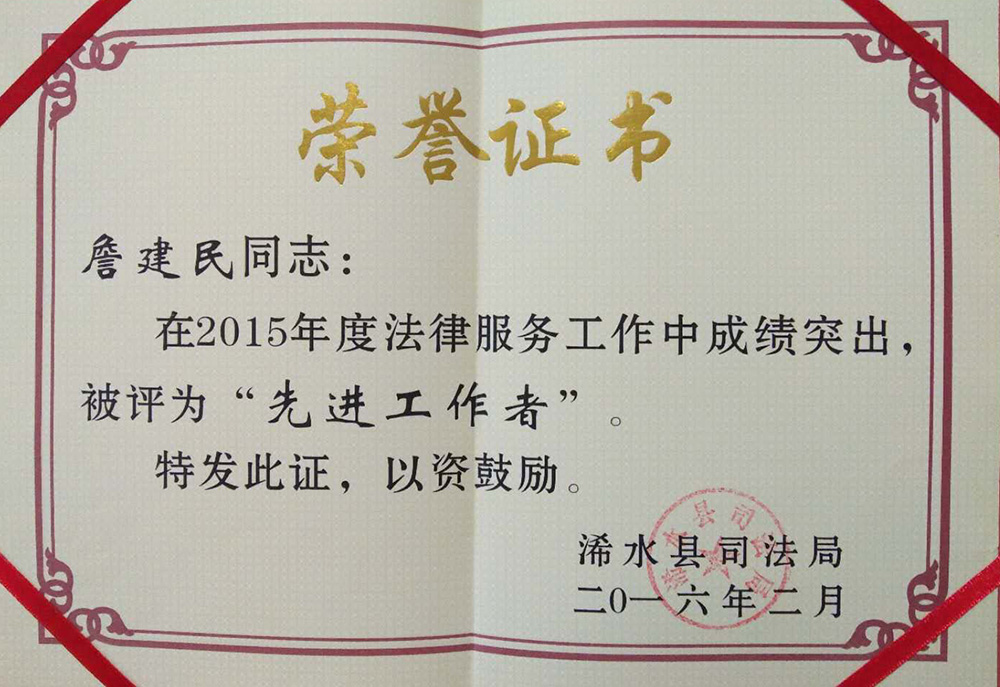 荣誉证书
詹建民同志：
在2015年度法律服务工作中成绩突出，
被评为“先进工作者”。
特发此证，以资鼓励。
浠水县司法局
浠水县司法局
二0一六年二月